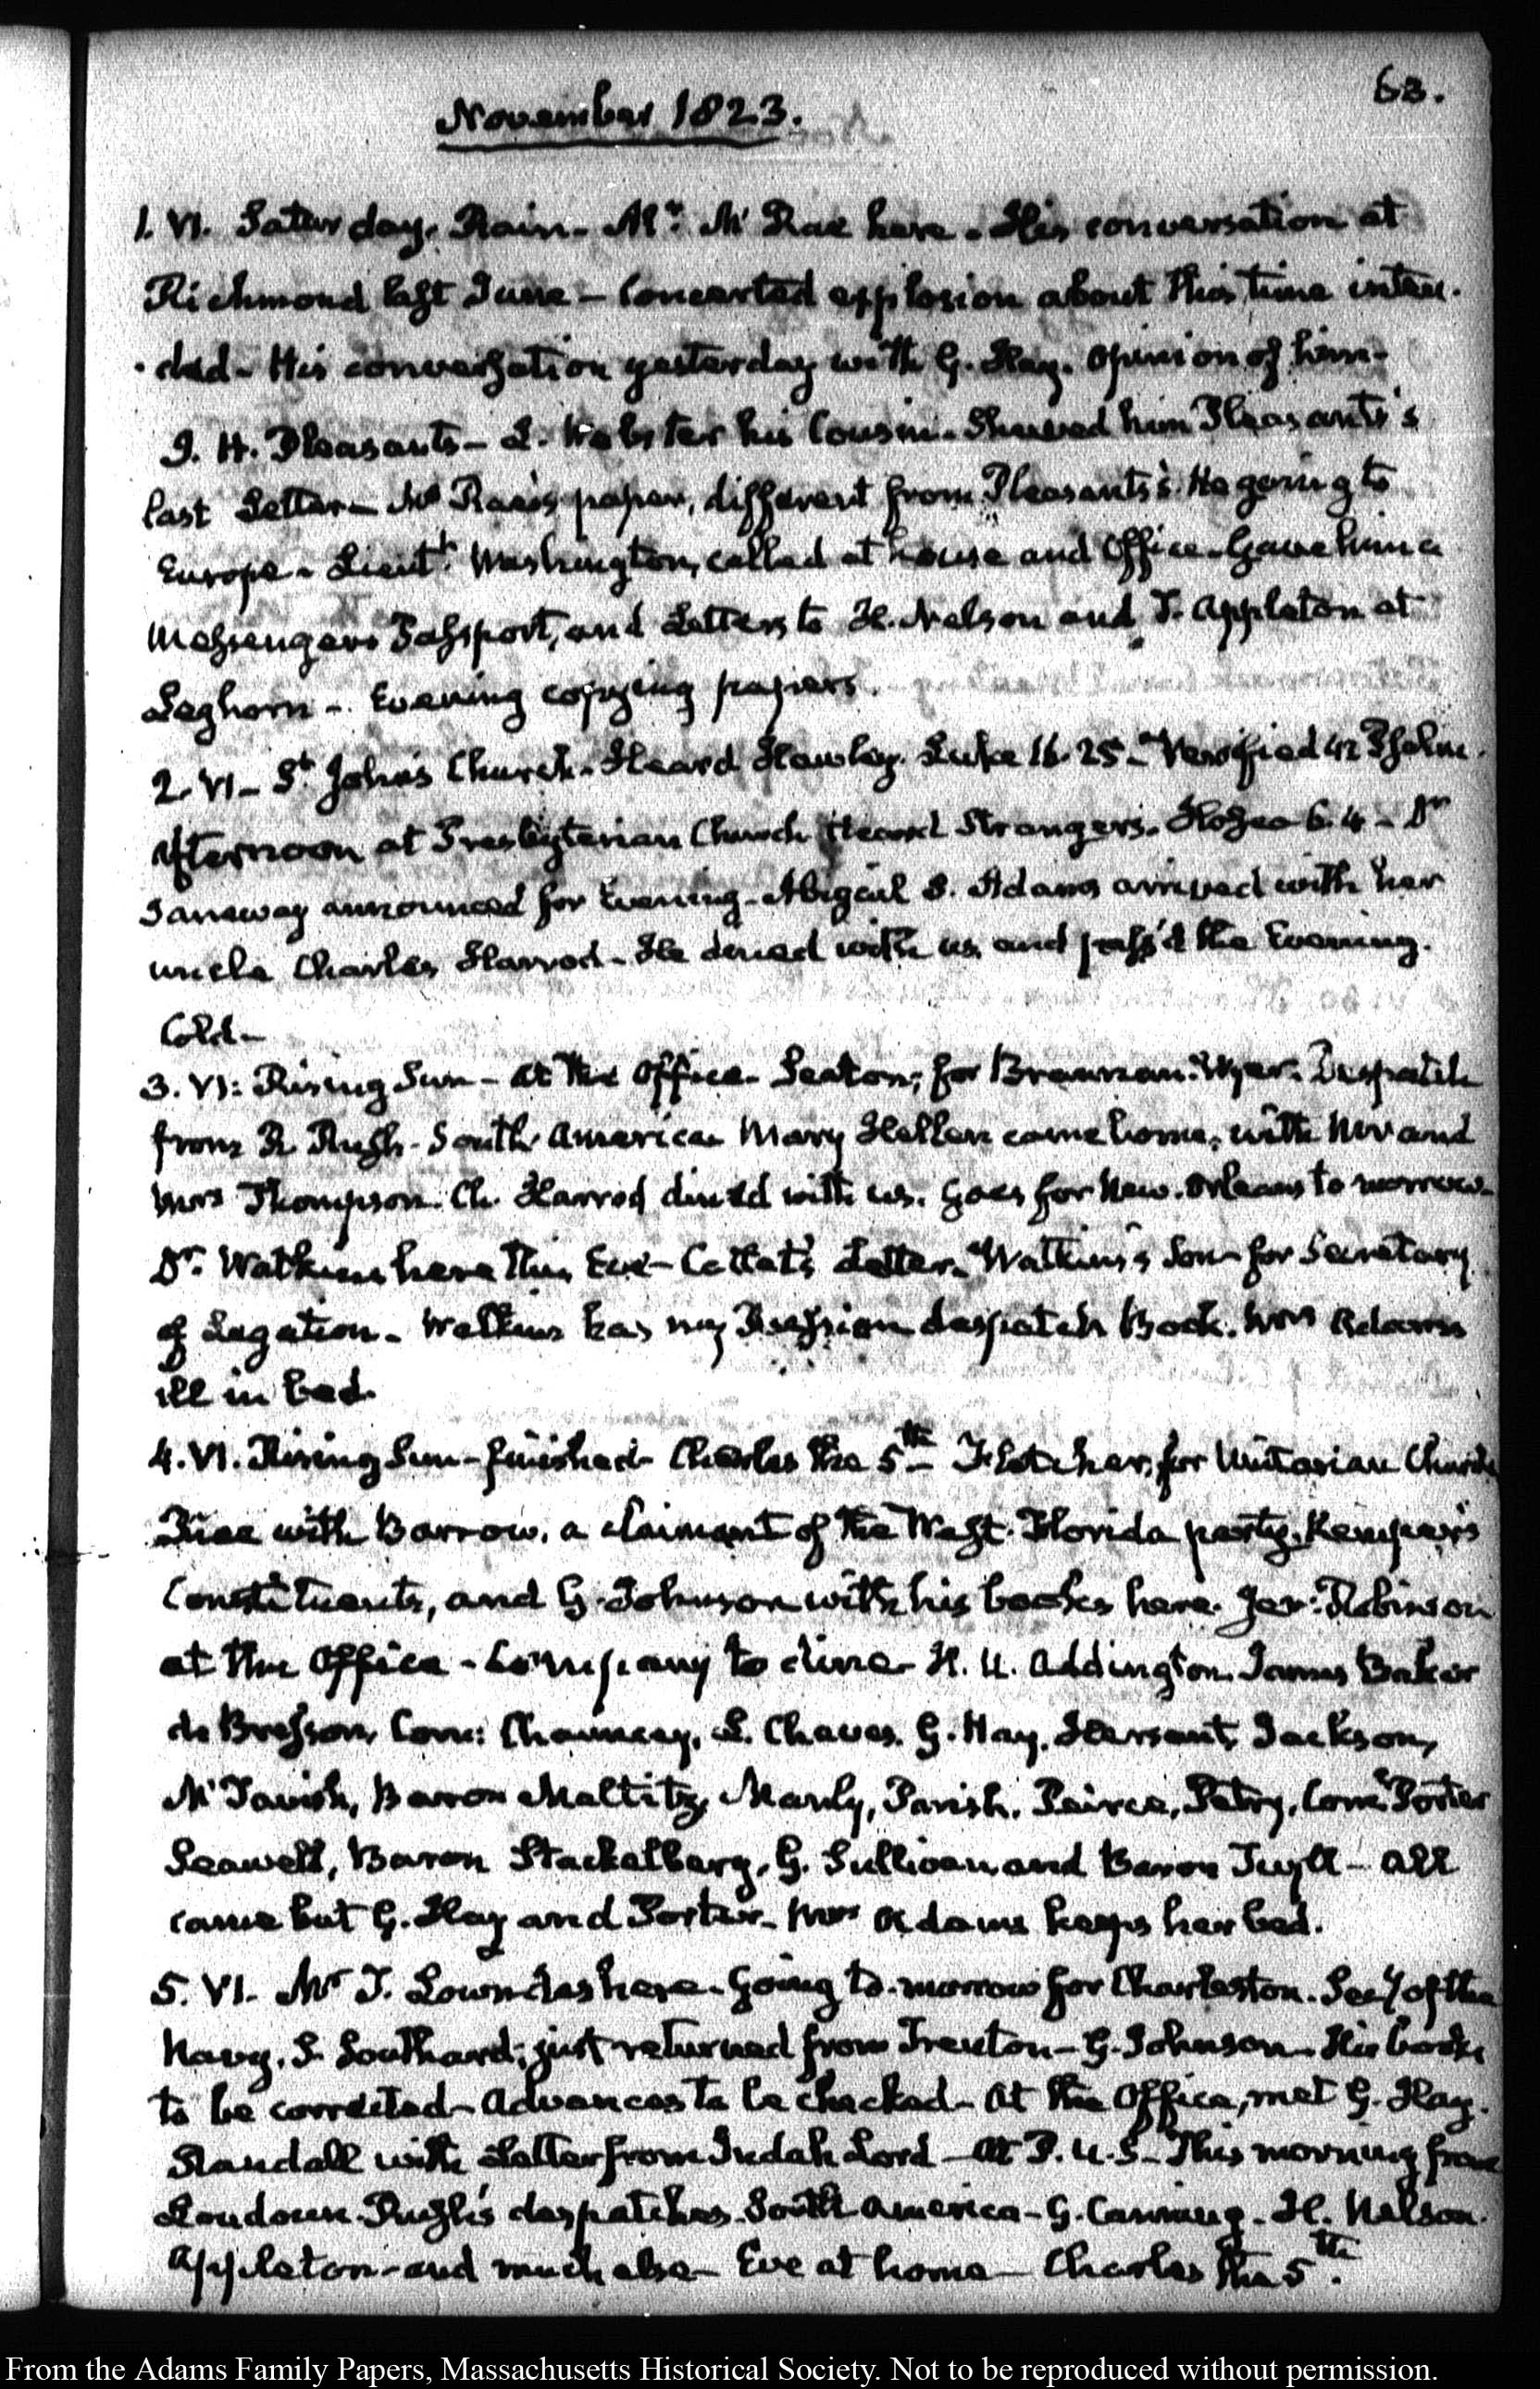 63.
November 1823.
1. VI. Saturday. Rain - Mr. McRae here - His conversation at
Richmond last June - Concerted explosion about this time inten-
-ded - His conversation yesterday with G. Hay. Opinion of him -
J. H. Pleasants - D. Webster his Cousin. Shewed him Pleasants's
last Letter - McRae's paper, different from Pleasants's. He going to
Europe - Lieutt. Washington, called at house and Office - Gave him a
Messengers Passport, and Letters to H. Nelson and T. Appleton at
Leghorn - Evening copying papers.
2. VI - St. John's Church - Heard Hawley. Luke 16. 25 - Versified 42 Psalm.
Afternoon at Presbyterian Church Heard Strangers. Hosea 6. 4 - Dr
Janeway announced for Evening - Abigail S. Adams arrived with her
uncle Charles Harrod - He dined with us, and pass'd the Evening.
Cold -
3. VI: Rising Sun - At the Office - Seaton; for Brannan. Wyer. Despatch
from R Rush - South America. Mary Hellen came home, with Mr and
Mrs Thompson. Ch. Harrod dined with us. Goes for New-Orleans to morrow.
Dr. Watkins here this Eve - Letter. Watkins's Son for Secretary
of Legation - Watkins has my Russian despatch Book. Mrs Adams
ill in bed.
4. VI. Rising Sun - finished Charles the 5th - Fletcher, for Unitarian Church
with Barrow, a claimant of the West-Florida party, Kemper's
Constituents, and G. Johnson with his books here. Jer: Robinson
at the Office - Company to dine - H. U. Addington. James Baker
de Bresson, Com: Chauncey, L. Cheves. G. Hay. Hersant, Jackson,
McTavish, Baron Maltitz, Manly, Parish, Peirce, Petry, Come. Porter
Seawell, Baron Stackelberg, G. Sullivan and Baron Tuyll - All
came but G. Hay and Porter - Mrs Adams keeps her bed.
5. VI. Mr T. Lowndes here - Going to-morrow for Charleston. Secy of the
Navy, S. Southard; just returned from Trenton - G. Johnson - His books
to be corrected - Advances to be checked - At the Office, met G. Hay.
Randall with Letter from Judah Lord - At P. U. S - This morning from
Loudoun. Rush's despatches - South America - G. Canning - H. Nelson.
Appleton - and much else - Eve at home - Charles the 5th.
From the Adams Family Papers, Massachusetts Historical Society. Not to be reproduced without permission.